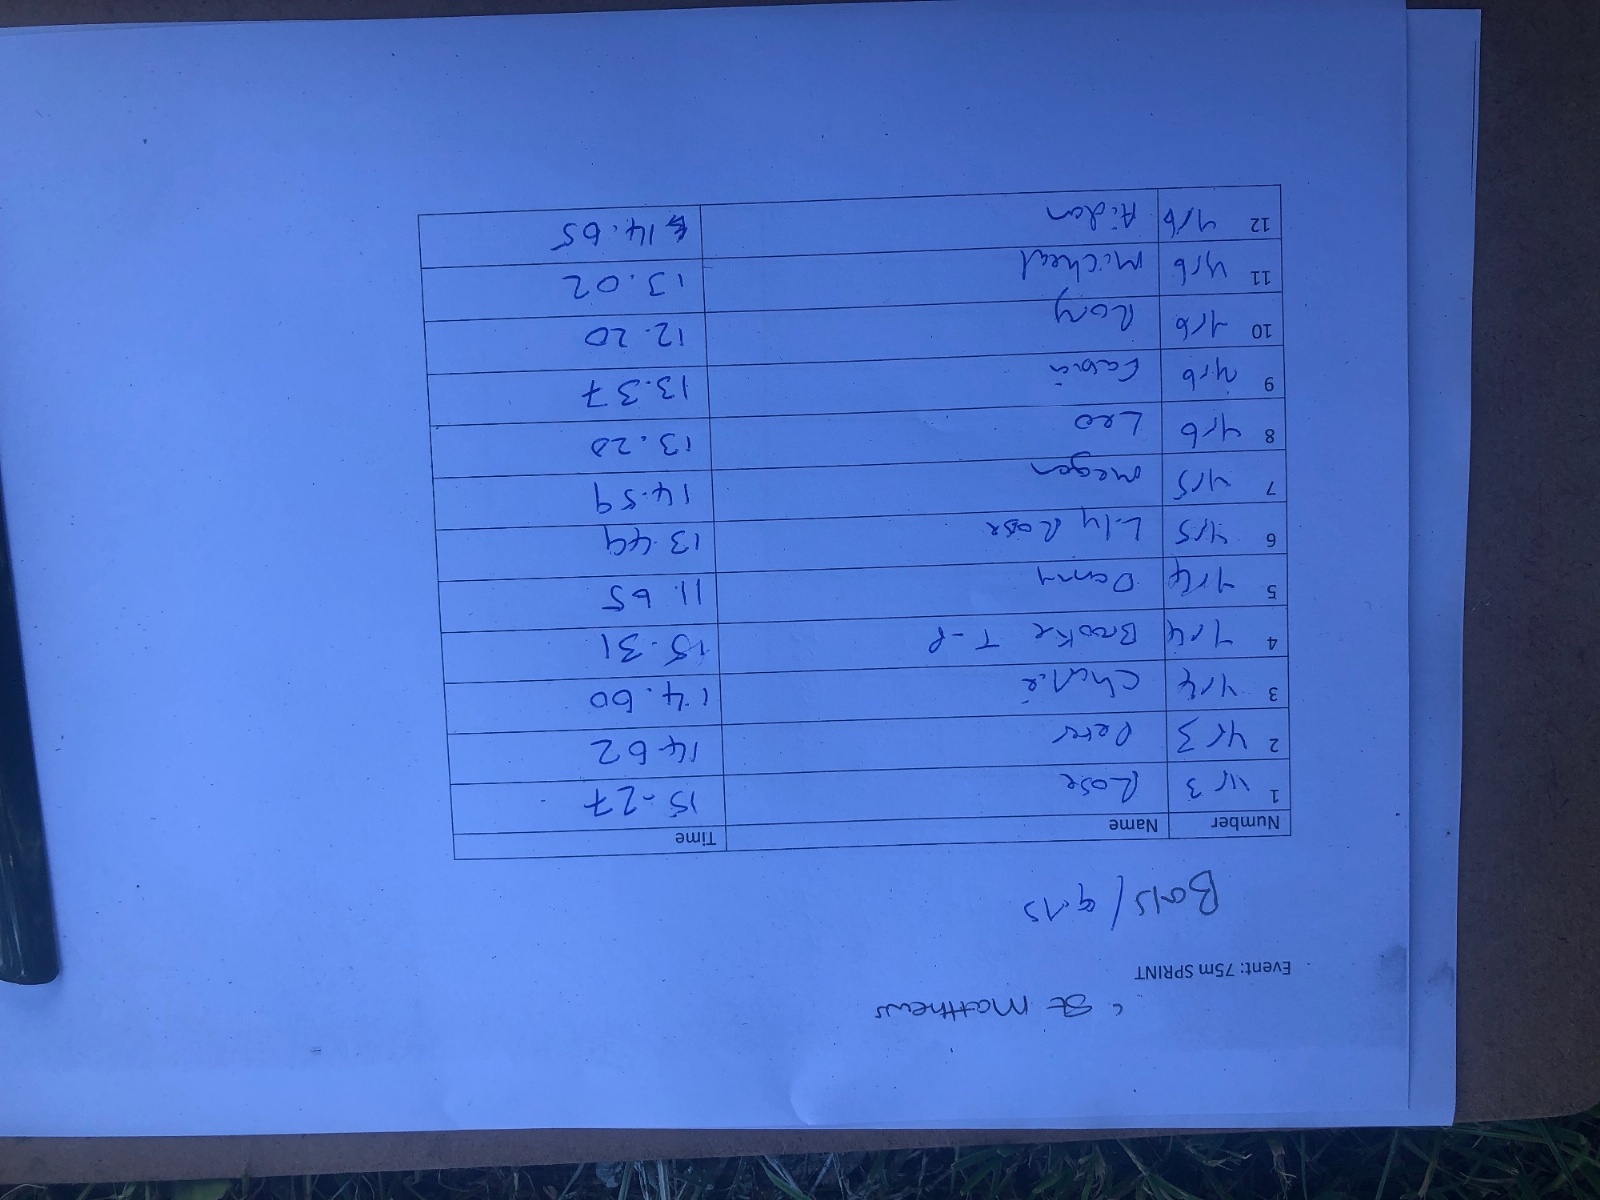 St Matthews
Event: 75m SPRINT
Boys / girls
Number Name Time
1 yr 3 Rose 15.27
2 yr 3 Peter 14.62
3 yr 4 Charlie 14.60
4 yr 4 Brooke T-P 15.31
5 yr 4 Danny 11.65
6 yr 5 Lily Rose 13.49
7 yr 5 Megan 14.59
8 yr 6 Leo 13.20
9 yr 6 13.37
10 yr 6 Rory 12.20
11 yr 6 Micheal 13.02
12 yr 6 Aidan 14.65